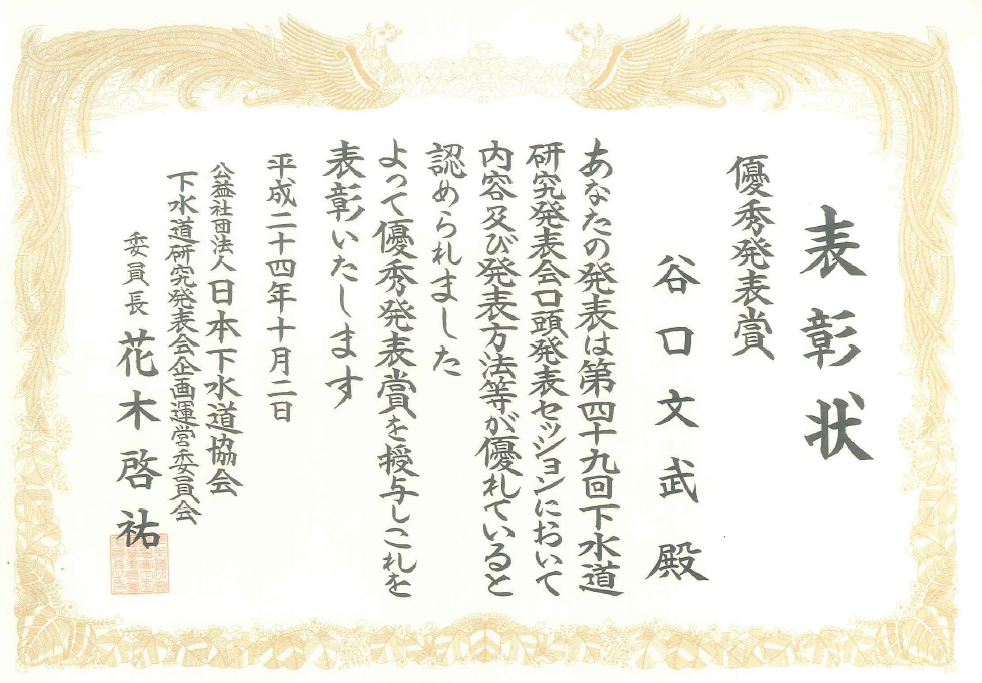 表彰状
優秀発表賞
谷口文武殿
あなたの発表は第四十九回下水道
研究発表会口頭発表セッションにおいて
内容及び発表方法等が優れていると
認められました
よって優秀発表賞を授与しこれを
表彰いたします
平成二十四年十月二日
公益社団法人日本下水道協会
下水道研究発表会企画運営委員会
委員長 花木啓祐